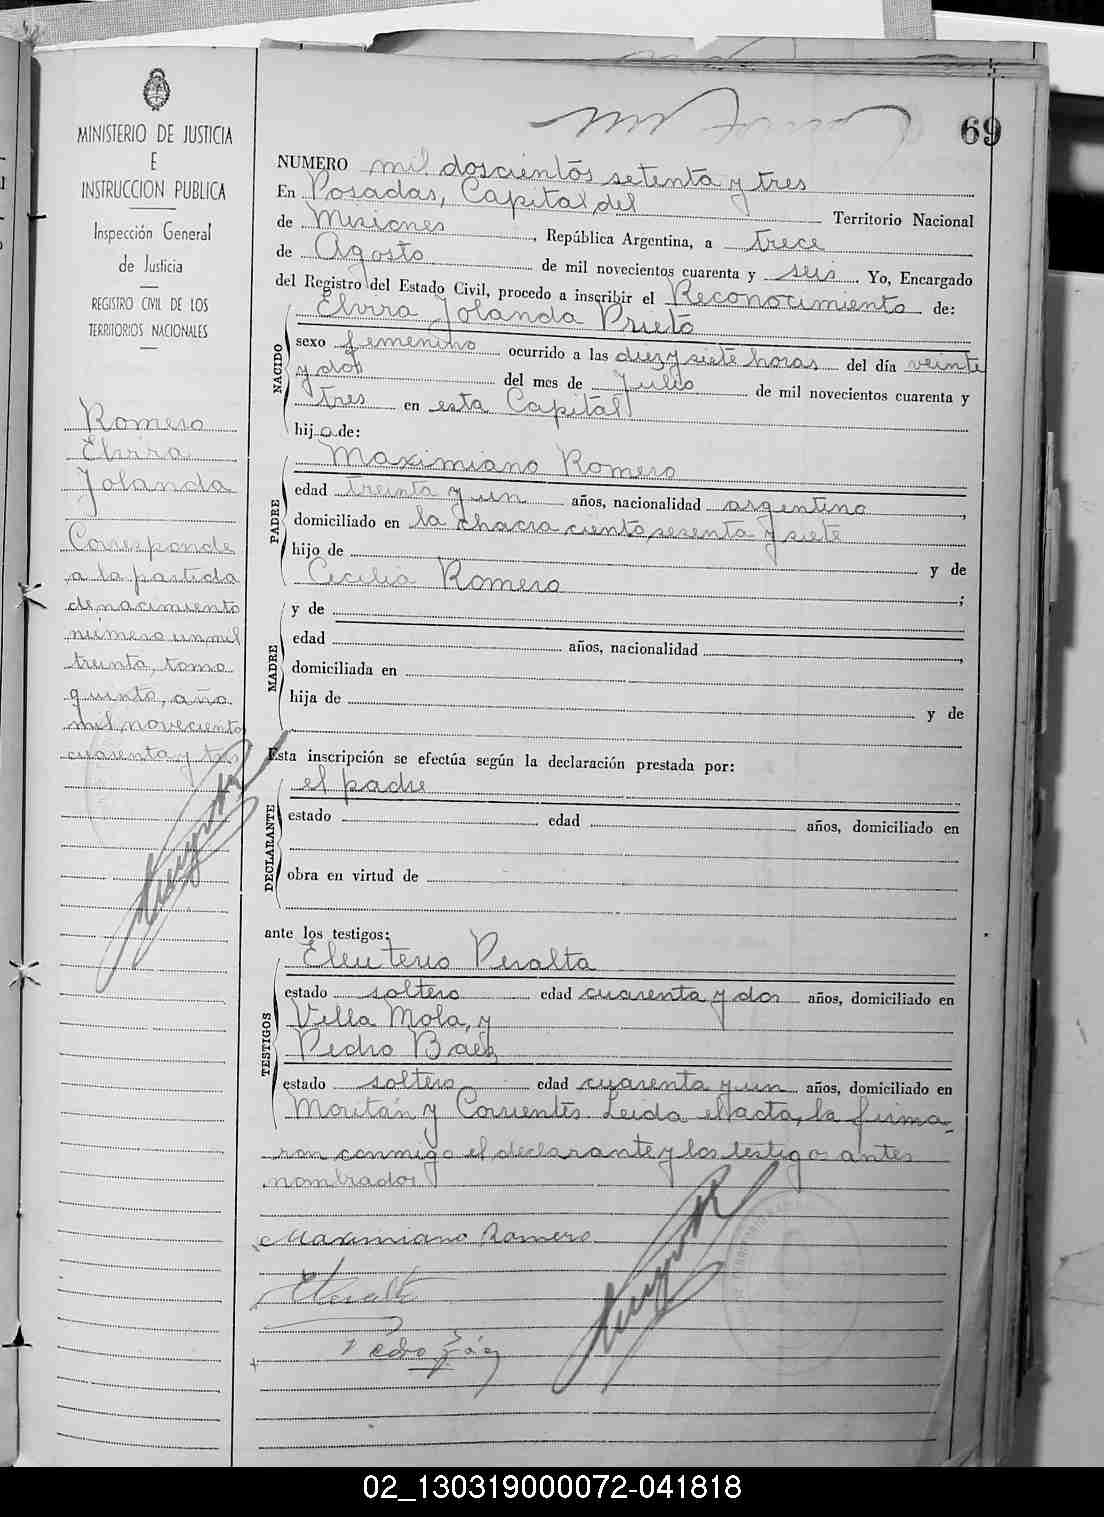 69
MINISTERIO DE JUSTICIA
E
INSTRUCCION PUBLICA
Inspección General
de Justicia
REGISTRO CIVIL DE LOS
TERRITORIOS NACIONALES
Romero
Elvira
Jolanda
Corresponde
a la partida
de nacimiento
número un mil
treinta, tomo
quinto, año
mil noveciento
cuarenta y tres
NUMERO mil doscientos setenta y tres
En Posadas, Capital del Territorio Nacional
de Misiones, República Argentina, a trece
de Agosto de mil novecientos cuarenta y seis. Yo, Encargado
del Registro del Estado Civil, procedo a inscribir el Reconocimiento de:
NACIDO
Elvira Jolanda Prieto
sexo femenino ocurrido a las diez y siete horas del día veinte
y dos del mes de Julio de mil novecientos cuarenta y
tres en esta Capital
hija de:
PADRE
Maximiano Romero
edad treinta y un años, nacionalidad argentino,
domiciliado en la chacra ciento sesenta y siete
hijo de y de
Cecilia Romero;
MADRE
y de
edad años, nacionalidad,
domiciliada en
hija de y de
Esta inscripción se efectúa según la declaración prestada por:
DECLARANTE
el padre
estado edad años, domiciliado en
obra en virtud de
ante los testigos:
TESTIGOS
Eleuterio Peralta
estado soltero edad cuarenta y dos años, domiciliado en
Villa Mola, y
Pedro Baez
estado soltero edad cuarenta y un años, domiciliado en
Moritán y Corrientes. Leida el acta, la firma-
ron conmigo el declarante y los testigos antes
nombrados
Maximiano Romero
02_130319000072-041818